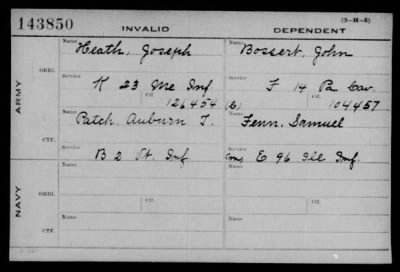 143850
INVALID
DEPENDENT
(3-H-5)
Name Heath, Joseph
Name Bossert, John
ARMY
ORIG.
Service K 23 Me Inf.
Service F 14 Pa Cav.
Ctf. 126454
(C) Ctf. 104457
CTF.
Name Patch, Auburn T.
Name Fenn, Samuel
B 2 Vt. Inf
E 96 Ill Inf.
NAVY
ORIG.
Name
Name
Service
Service
Ctf.
Ctf.
CTF.
Name
Name